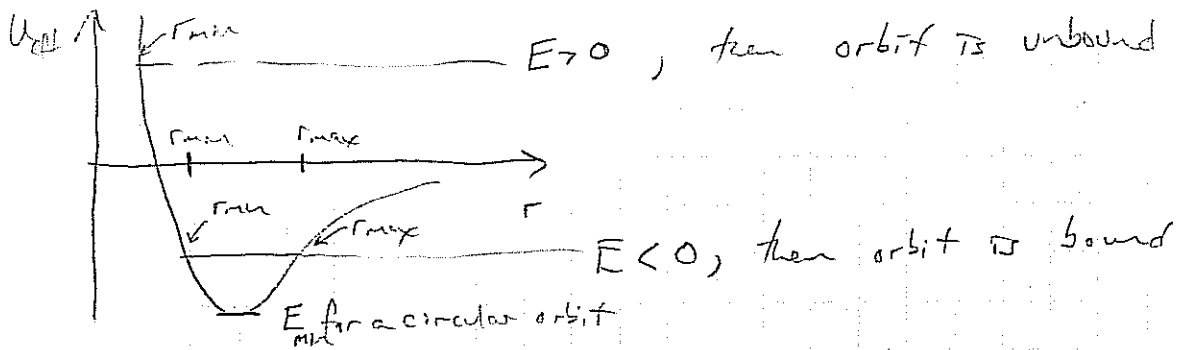 U_eff
r_min
E>0, then orbit is unbound
r_min r_max
r
r_min
r_max
E<0, then orbit is bound
E_min for a circular orbit